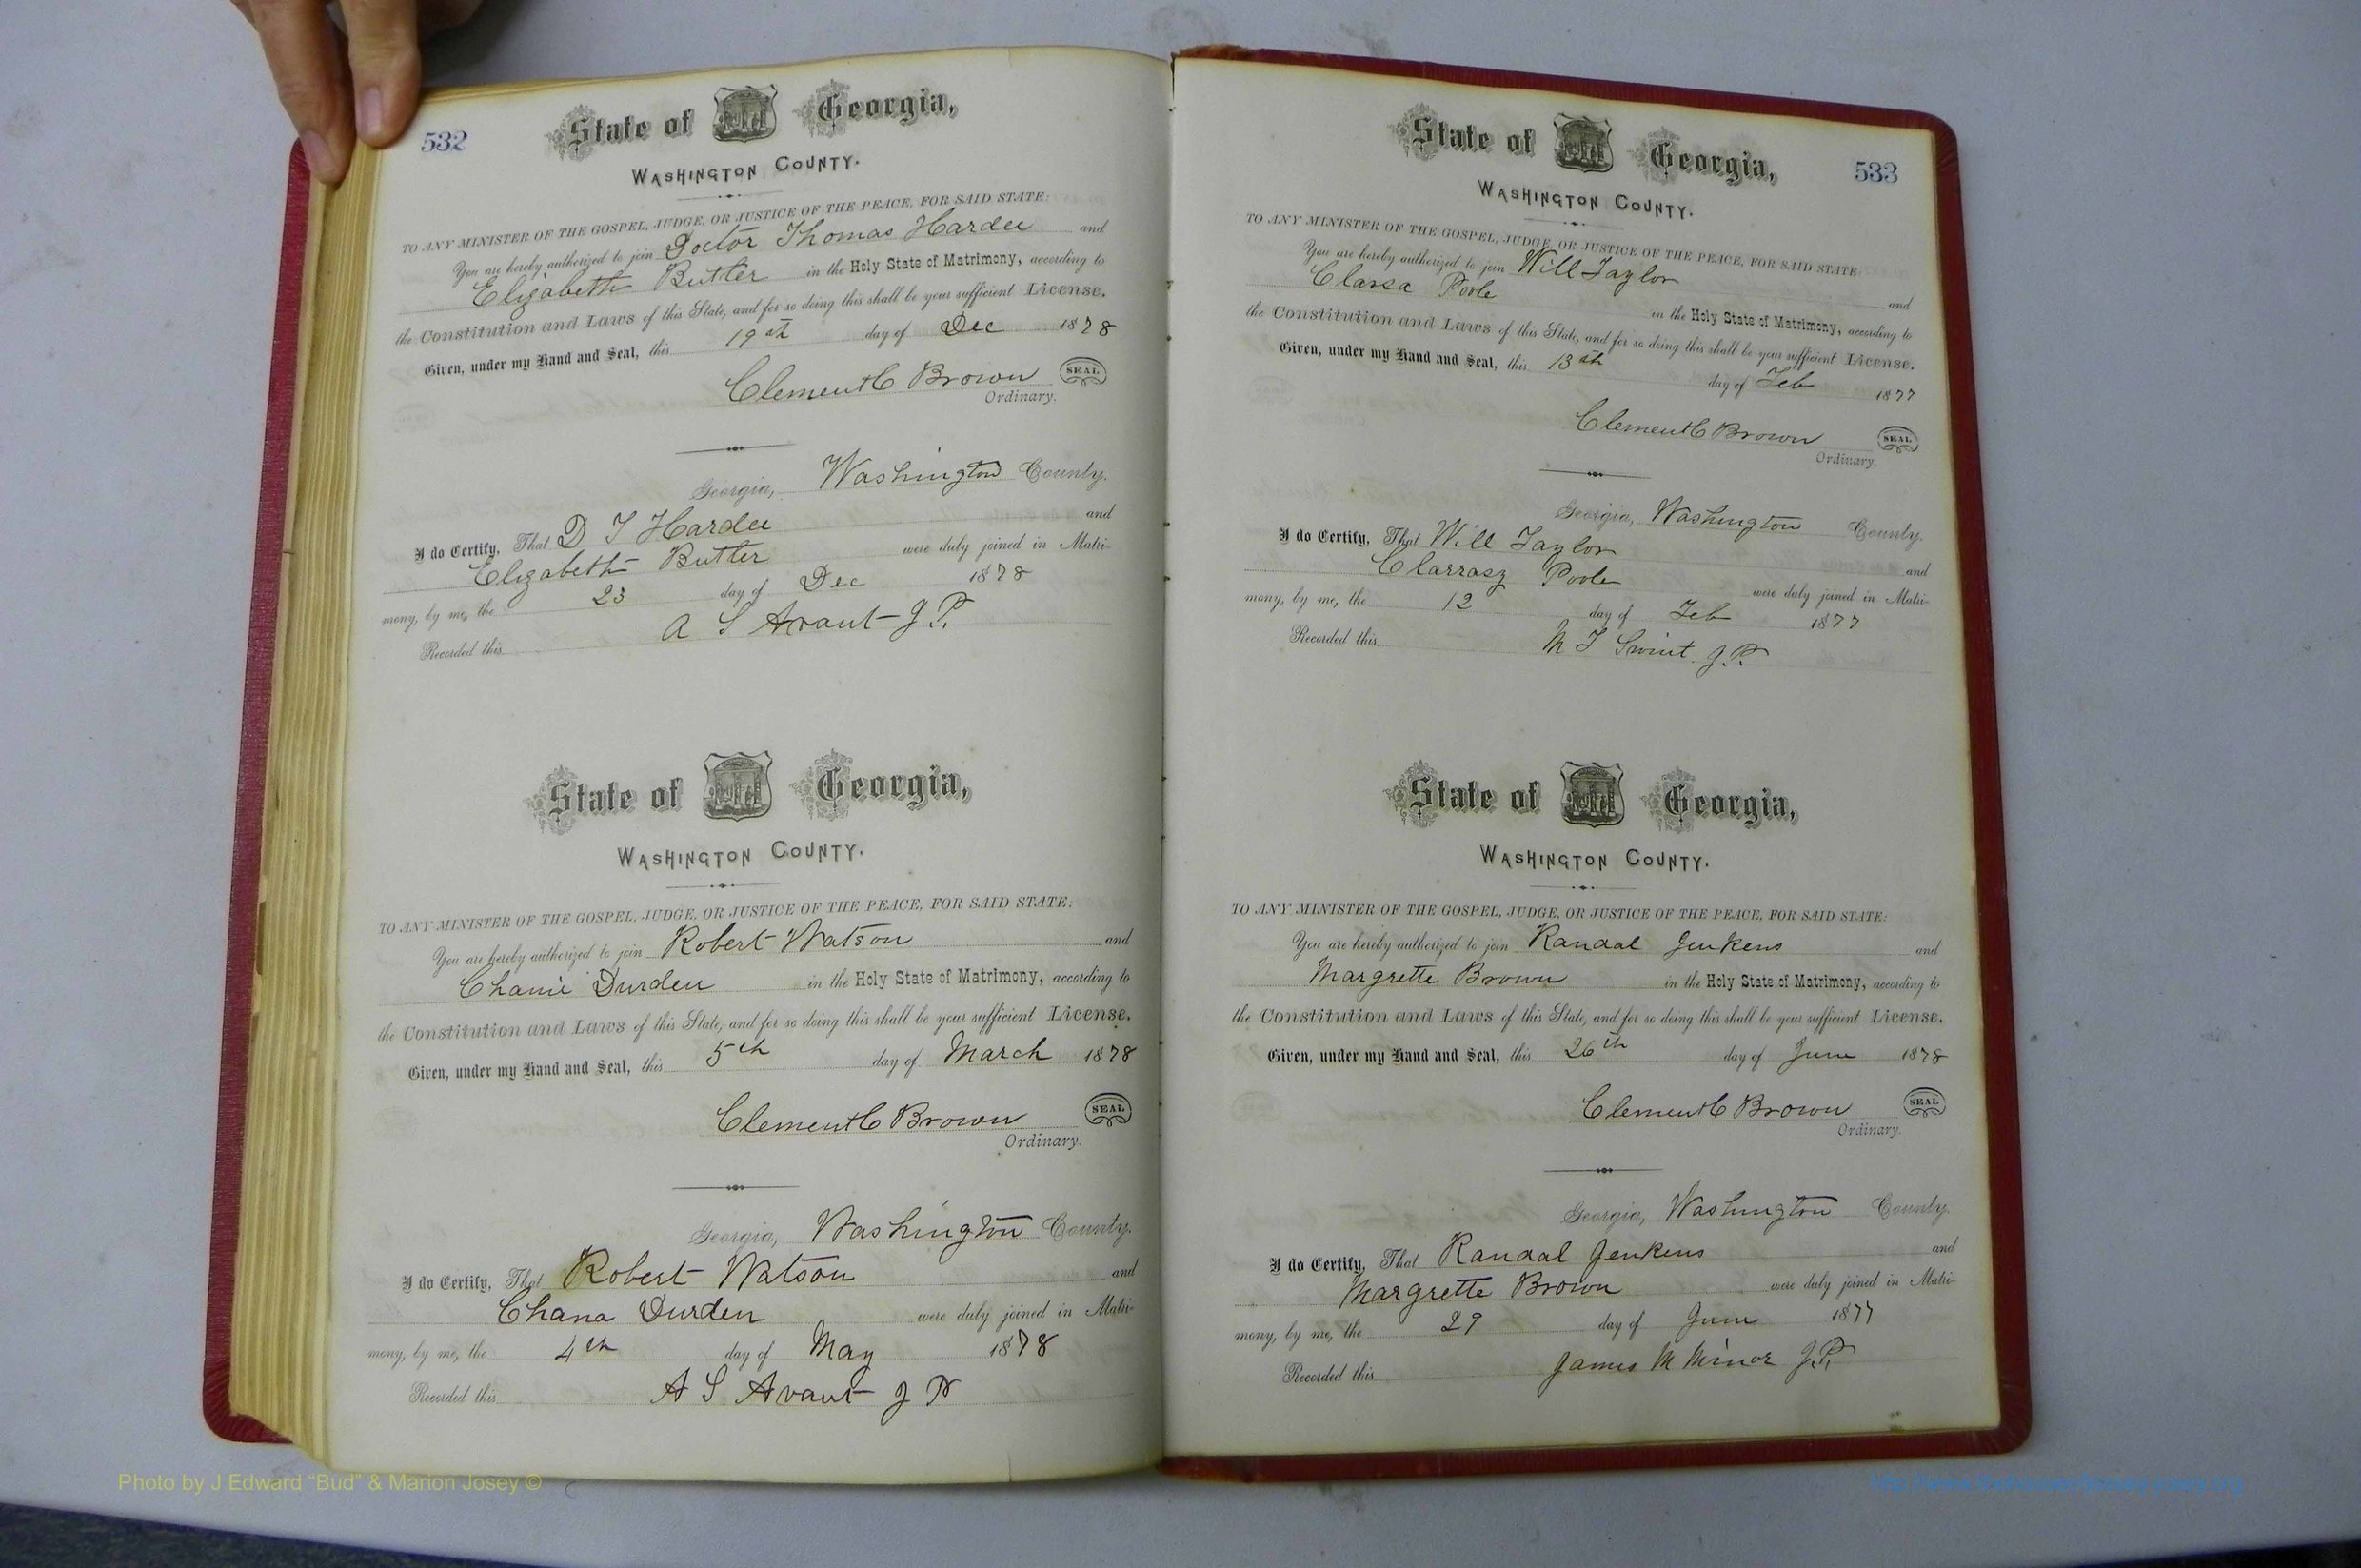 532
State of Georgia,
WASHINGTON COUNTY.
TO ANY MINISTER OF THE GOSPEL, JUDGE, OR JUSTICE OF THE PEACE, FOR SAID STATE:
You are hereby authorized to join Doctor Thomas Hardee and
Elizabeth Butler in the Holy State of Matrimony, according to
the Constitution and Laws of this State, and for so doing this shall be your sufficient License.
Given, under my Hand and Seal, this 19th day of Dec 1878
Clement C Brown SEAL
Ordinary.
Georgia, Washington County.
I do Certify, That D T Hardee and
Elizabeth Butler were duly joined in Matri-
mony, by me, the 23 day of Dec 1878
A S Avant J P.
Recorded this
State of Georgia,
WASHINGTON COUNTY.
TO ANY MINISTER OF THE GOSPEL, JUDGE, OR JUSTICE OF THE PEACE, FOR SAID STATE:
You are hereby authorized to join Robert Watson and
Chanie Durden in the Holy State of Matrimony, according to
the Constitution and Laws of this State, and for so doing this shall be your sufficient License.
Given, under my Hand and Seal, this 5th day of March 1878
Clement C Brown SEAL
Ordinary.
Georgia, Washington County.
I do Certify, That Robert Watson and
Chana Durden were duly joined in Matri-
mony, by me, the 4th day of May 1878
Recorded this A S Avant J P
533
State of Georgia,
WASHINGTON COUNTY.
TO ANY MINISTER OF THE GOSPEL, JUDGE, OR JUSTICE OF THE PEACE, FOR SAID STATE:
You are hereby authorized to join Will Taylor
Clarsa Poole and
in the Holy State of Matrimony, according to
the Constitution and Laws of this State, and for so doing this shall be your sufficient License.
Given, under my Hand and Seal, this 13th day of Feb 1877
Clement C Brown SEAL
Ordinary.
Georgia, Washington County.
I do Certify, That Will Taylor and
Clarrasy Poole were duly joined in Matri-
mony, by me, the 12 day of Feb 1877
Recorded this M T Swint J.P.
State of Georgia,
WASHINGTON COUNTY.
TO ANY MINISTER OF THE GOSPEL, JUDGE, OR JUSTICE OF THE PEACE, FOR SAID STATE:
You are hereby authorized to join Randal Jenkens and
Margrette Brown in the Holy State of Matrimony, according to
the Constitution and Laws of this State, and for so doing this shall be your sufficient License.
Given, under my Hand and Seal, this 26th day of June 1878
Clement C Brown SEAL
Ordinary.
Georgia, Washington County.
I do Certify, That Randal Jenkens and
Margrette Brown were duly joined in Matri-
mony, by me, the 29 day of June 1877
Recorded this James M Minor J.P.
Photo by J Edward “Bud” & Marion Josey ©